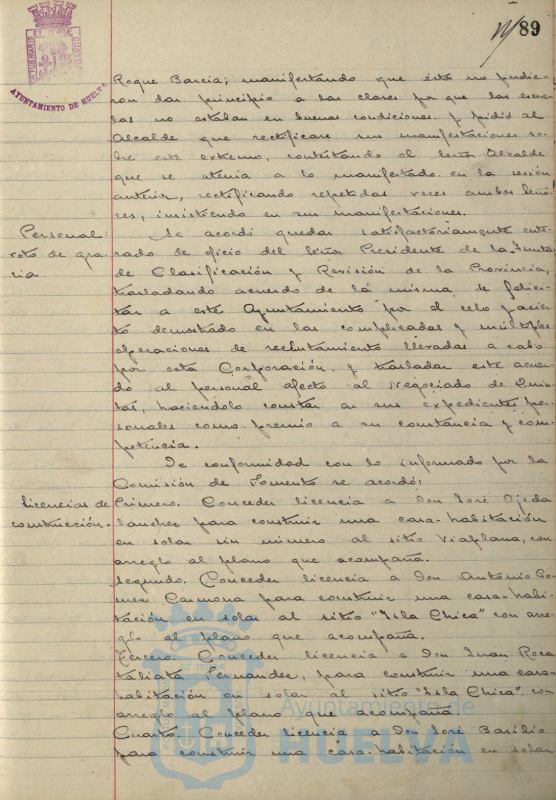 89
AYUNTAMIENTO DE HUELVA
Roque Barcia; manifestando que éstos no pudie-
ron dar principio a las clases por que las escue-
las no estaban en buenas condiciones y pidió al
Alcalde que rectificase sus manifestaciones so-
bre este extremo, contestando el Señor Alcalde
que se atenia a lo manifestado en la sesión
anterior, rectificando repetidas veces ambos Seño-
res, insistiendo en sus manifestaciones.
Personal:
voto de gra-
cia.
Se acordó quedar satisfactoriamente ente-
rado de oficio del Señor Presidente de la Junta
de Clasificación y Revisión de la Provincia,
trasladando acuerdo de la misma de felici-
tar a este Ayuntamiento por el celo y acier-
to demostrado en las complicadas y múltiples
operaciones de reclutamiento llevadas a cabo
por esta Corporación, y trasladar este acuer-
do al personal afecto al Negociado de Quin-
tas, haciendolo constar en sus expedientes per-
sonales como premio a su constancia y com-
petencia.
De conformidad con lo informado por la
Comisión de Fomento se acordó:
Licencias de
construcción.
Primero. Conceder licencia a Don José Ojeda
Sanchez para construir una casa-habitación
en solar sin número al sitio Viaplana, con
arreglo al plano que acompaña.
Segundo. Conceder licencia a Don Antonio
Carmona para construir una casa-habi-
tación en solar al sitio "Isla Chica" con arre-
glo al plano que acompaña.
Tercero. Conceder licencia a Don Juan Roca
Fernandez, para construir una casa-
habitación en solar al sitio "Isla Chica", con
arreglo al plano que acompaña.
Cuarto. Conceder licencia a Don José Basilio
para construir una casa-habitación en solar
Ayuntamiento de
HUELVA